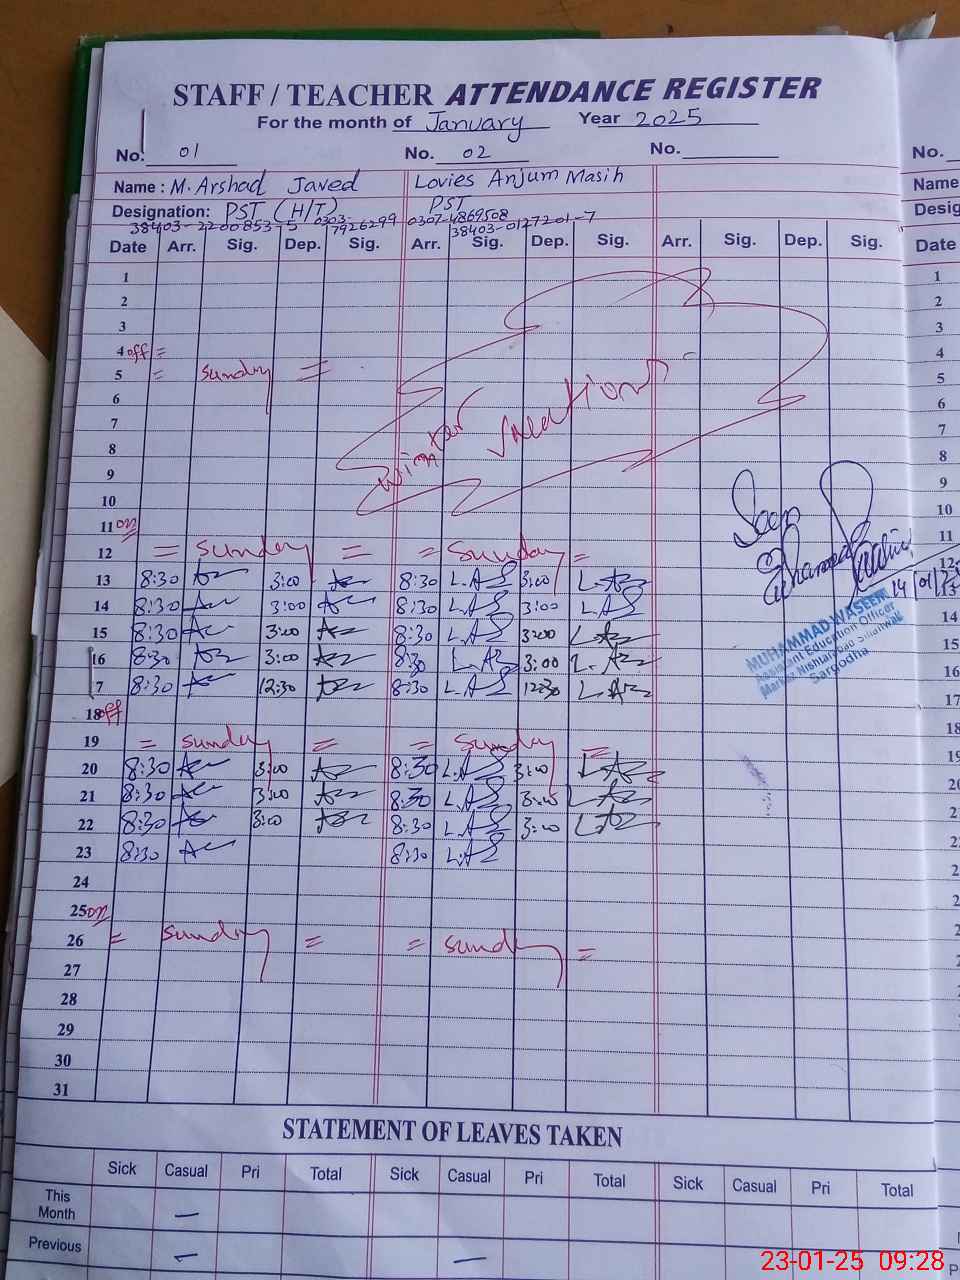 STAFF / TEACHER ATTENDANCE REGISTER
For the month of January Year 2025
No. 01 No. 02 No. No.
Name : M. Arshad Javed Lovies Anjum Masih Name
Designation: PST (H/T) PST Desig
38403-2200853-5 0303-7926299 0307-4869508
38403-0127201-7
Date Arr. Sig. Dep. Sig. Arr. Sig. Dep. Sig. Arr. Sig. Dep. Sig. Date
1 1
2 2
3 3
4 off = 4
5 = Sunday = 5
6 6
7 7
8 winter vacation 8
9 9
10 10
11 on 11
12 = Sunday = = Sunday = 12
13 8:30 3:00 8:30 L.AS 3:00 13
14 8:30 3:00 8:30 L.AS 3:00 L.AS 14
15 8:30 3:00 8:30 L.AS 3:00 15
16 8:30 3:00 8:30 3:00 16
17 8:30 12:30 8:30 L.AS 12:30 17
18 off 18
19 = Sunday = = Sunday = 19
20 8:30 3:00 8:30 L.AS 3:00
21 8:30 3:00 8:30 L.AS 3:00
22 8:30 3:00 8:30 L.AS 3:00
23 8:30 8:30 L.AS
24
25 on
26 = Sunday = = Sunday =
27
28
29
30
31
Seen
14/01/25
MUHAMMAD WASEEM
Assistant Education Officer
Sargodha
STATEMENT OF LEAVES TAKEN
Sick Casual Pri Total Sick Casual Pri Total Sick Casual Pri Total
This Month —
Previous — —
23-01-25 09:28